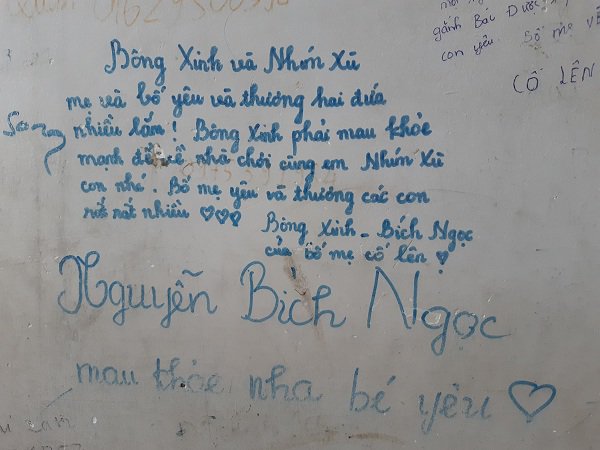 01629500
gánh Bác Được
con yêu. Số mẹ
CỐ LÊN
Bông Xinh và Nhím Xù
mẹ và bố yêu và thương hai đứa
nhiều lắm! Bông Xinh phải mau khỏe
mạnh để về nhà chơi cùng em Nhím Xù
con nhé. Bố mẹ yêu và thương các con
rất rất nhiều ♡♡♡
Bông Xinh - Bích Ngọc
của bố mẹ cố lên ♡
Nguyễn Bích Ngọc
mau khỏe nha bé yêu ♡